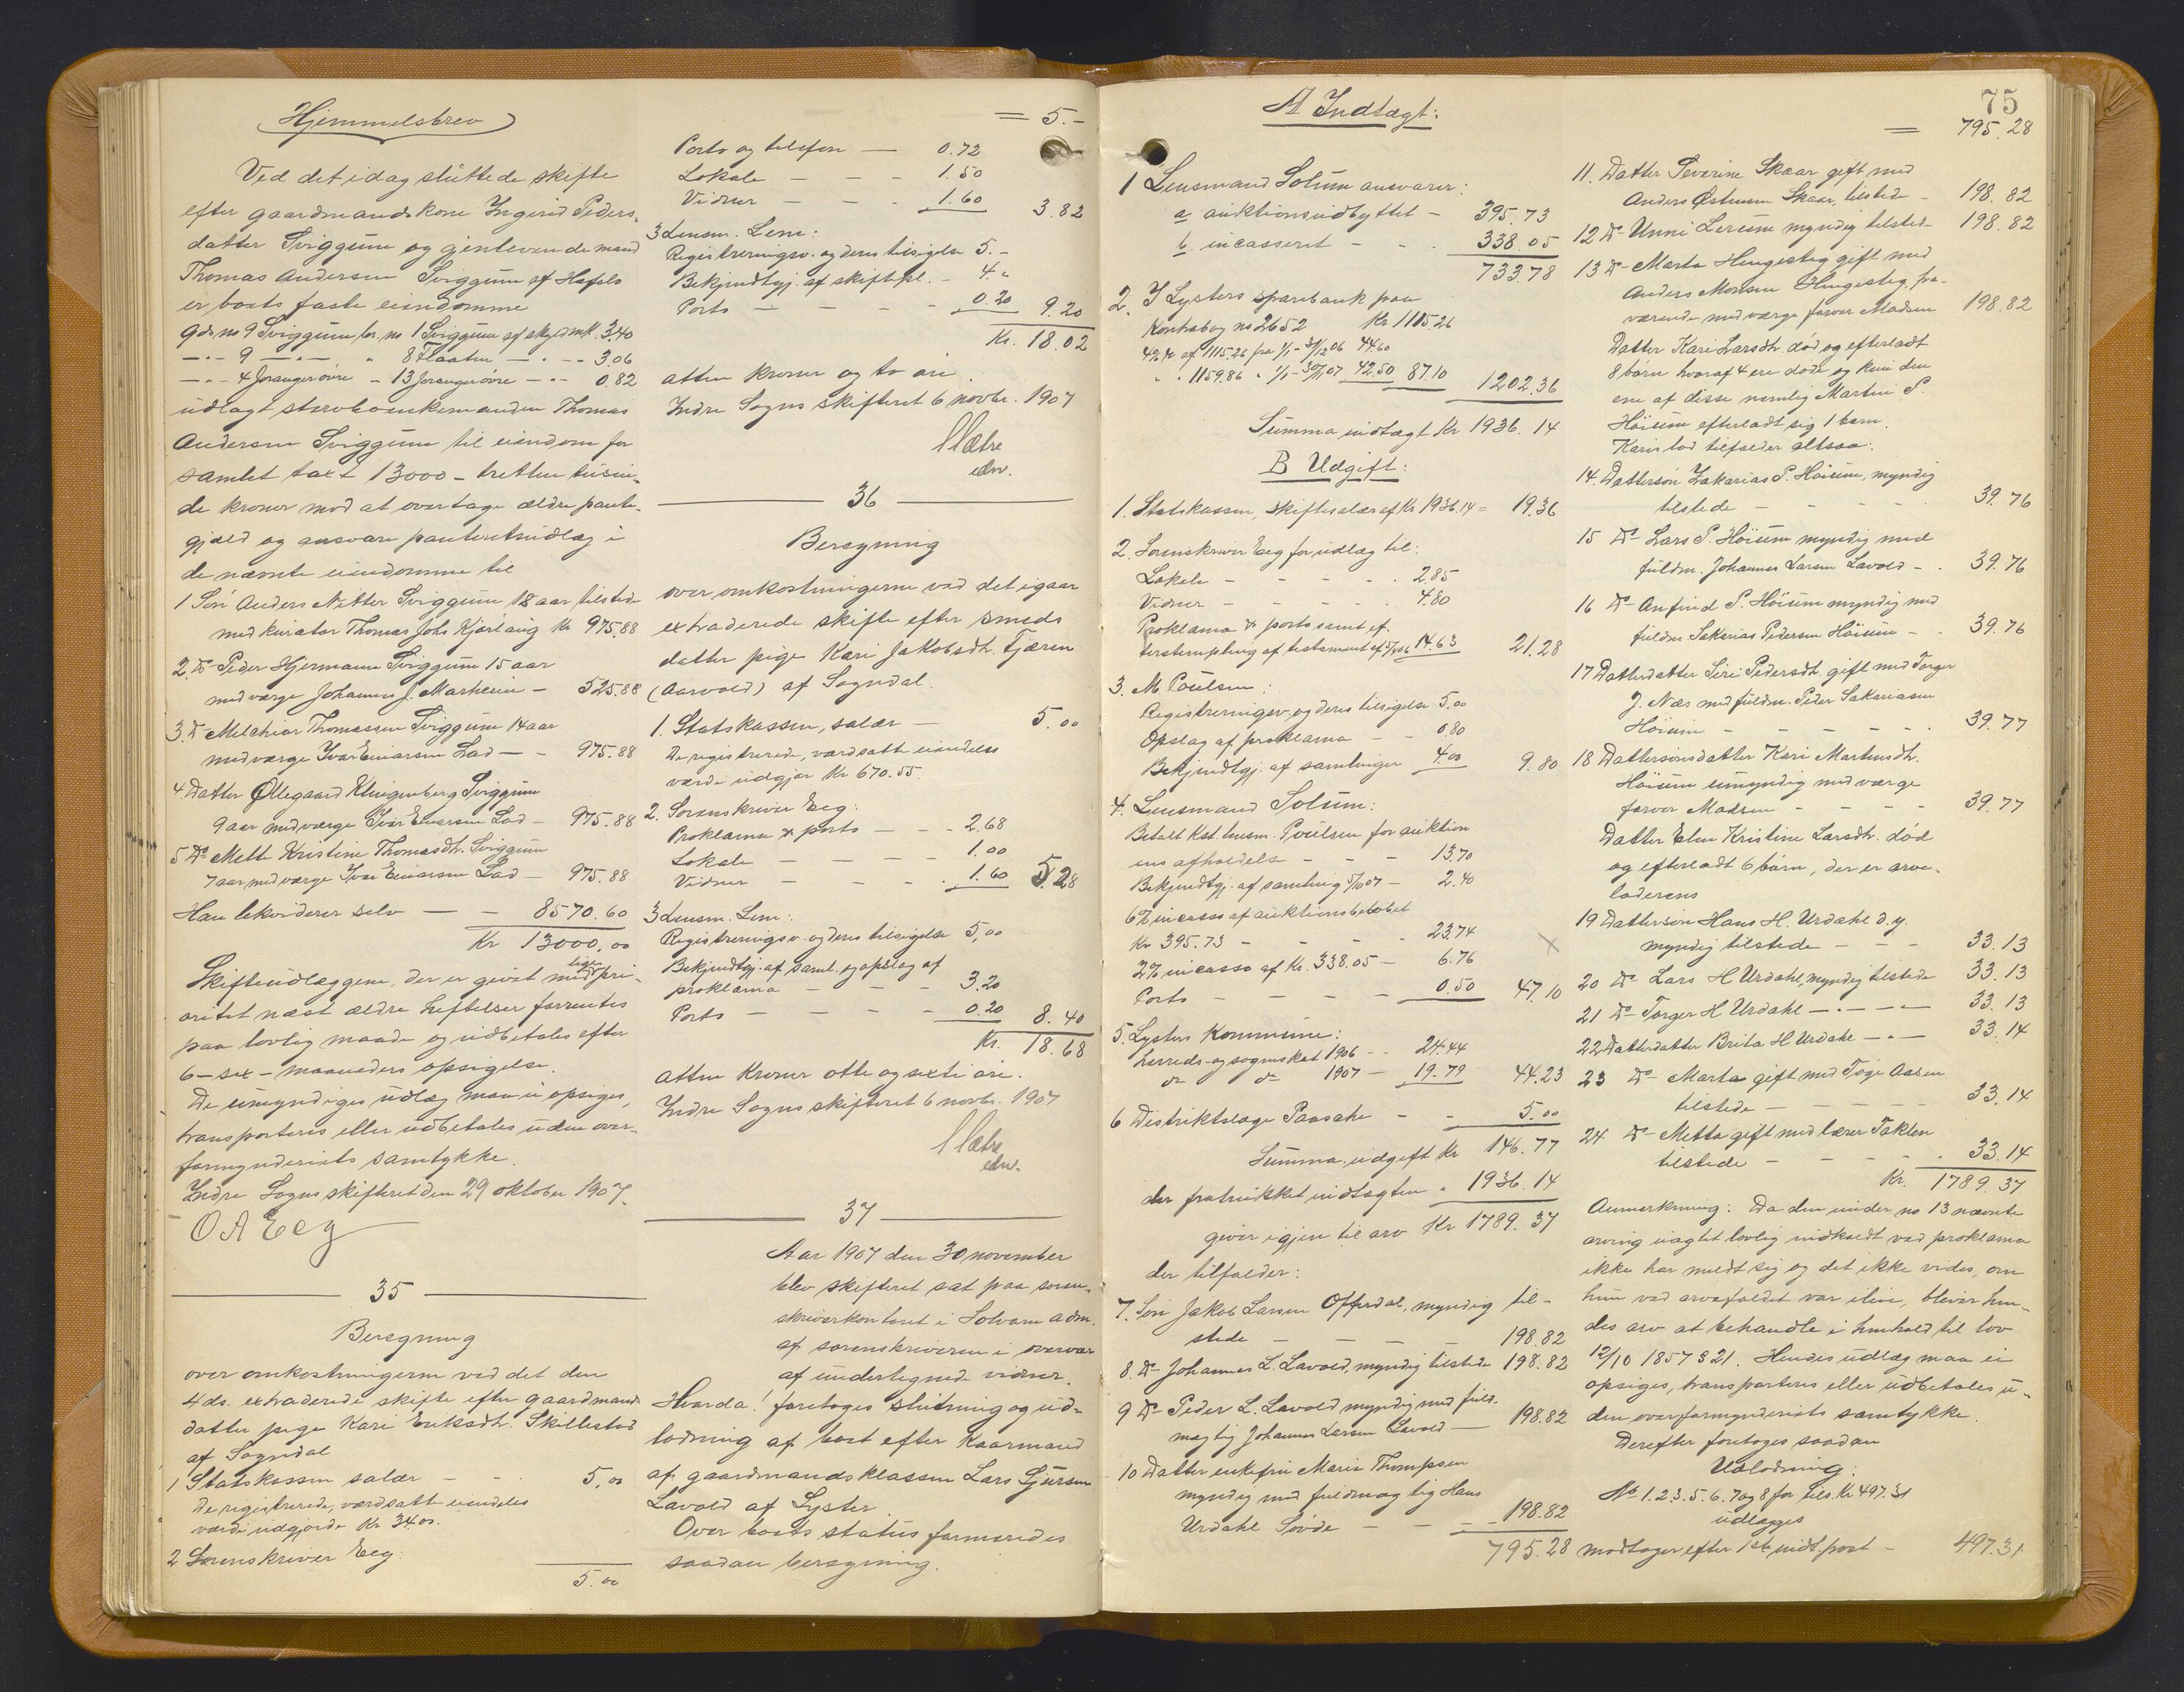 Hjemmelsbrev
Ved det idag sluttede skifte
efter gaardmandskone Ingerid Peders-
datter Sviggum og gjenlevende mand
Thomas Andersen Sviggum af Hafslo
er boets faste eiendomme
Gds no 9 Sviggum br. no 1 Sviggum af skyld mk. 3.40
— " — 9 — " — " 8 Flaaten — " — 3.06
— " — 4 Joranger øvre " 13 Joranger øvre — " — 0.82
udlagt stervboenkemanden Thomas
Andersen Sviggum til eiendom for
samlet taxt 13000 – tretten tusin-
de kroner mod at overtage ældre pante-
gjæld og ansvare panteretsudlæg i
de nævnte eiendomme til
1 Søn Anders Nitter Sviggum 18 aar tilstede
med kurator Thomas Johs Kjørlaug Kr 975.88
2. Do Peder Hjermann Sviggum 15 aar
med værge Johannes J. Marheim – 525.88
3. Do Melchior Thomassen Sviggum 14 aar
med værge Ivar Einarsen Lad – – 975.88
4 Datter Øllegaard Klingenberg Sviggum
9 aar med værge Ivar Einarsen Lad – 975.88
5 Do Mette Kristine Thomasdtr. Sviggum
7 aar med værge Ivar Einarsen Lad – 975.88
Han likviderer selv — – 8570.60
Kr 13000,00
Skifteudlæggene, der er givet med lige pri-
oritet næst ældre heftelser forrentes
paa lovlig maade og udbetales efter
6 – sex – maaneders opsigelse.
De umyndiges udlæg maa ei opsiges,
transporteres eller udbetales uden over-
formynderiets samtykke.
Indre Sogns skifteret den 29 oktober 1907.
O A Eeg
35
Beregning
over omkostningerne ved det den
4 ds. extraderede skifte efter gaardmands
datter pige Kari Eriksdtr. Skillestad
af Sogndal
1 Statskassen salær – – 5,00
De registrerede, værdsatte eiendeles
værdi udgjorde Kr 34.00.
2 Sorenskriver Eeg:
5.00
= 5.–
Porto og telefon — 0.72
Lokale — – – 1.50
Vidner – – – 1.60 3.82
3 Lensm. Lem:
Registreringsv. og deres tilsigelse 5.–
Bekjendtgj. af skiftepl. – 4."
Porto — – – – 0.20 9.20
Kr. 18.02
atten kroner og to øre.
Indre Sogns skifteret 6 novbr. 1907
edv.
36
Beregning
over omkostningerne ved det igaar
extraderede skifte efter smeds
datter pige Kari Jakobsdtr. Tjæren
(Aarvold) af Sogndal.
1. Statskassen, salær — 5.00
De registrerede, værdsatte eiendeles
værdi udgjør Kr 670.55.
2. Sorenskriver Eeg:
Proklama & porto – – – 2.68
Lokale — – – – 1.00
Vidner – – – . 1.60 5.28
3 Lensm. Lem:
Registreringsv. og deres tilsigelse 5,00
Bekjendtgj. af saml. og opslag af
proklama – – – 3.20
Porto – – – – 0.20 8.40
Kr. 18.68
atten Kroner otte og sexti øre.
Indre Sogns skifteret 6 novbr. 1907
edv.
37
Aar 1907 den 30 november
blev skifteret sat paa soren-
skriverkontoret i Solvorn adm.
af sorenskriveren i overvær
af undertegnede vidner.
Hvorda! foretoges slutning og ud-
lodning af boet efter Kaarmand
af gaardmandsklassen Lars Gjursen
Lavold af Lyster
Over boets status formeredes
saadan beregning.
75
A Indtægt:
1 Lensmand Solum ansvarer:
a auktionsudbyttet – 395.73
b. incasseret – – . 338.05
733.78
2. I Lysters sparebank paa
Kontrabog no 2652 Kr 1115.26
4% % af 1115.26 fra 1/1 – 31/12 06 44.60
" " 1159.86 " 1/1 – 30/11 07 42.50 87.10 1202.36
Summa indtægt Kr 1936.14
B Udgift:
1. Statskassen, skiftesalær af Kr 1936.14 = 19.36
2. Sorenskriver Eeg for udlæg til:
Lokale – – – – . 2.85
Vidner – – – – . 4.80
Proklama & porto samt ef-
terstempling af testament af 14.63 21.28
3. M. Poulsen:
Registreringsv. og deres tilsigelse 5.00
Opslag af proklama – – 0.80
Bekjendtgj. af samlinger 4.00 9.80
4. Lensmand Solum:
Betalt Kst. lensm. Poulsen for auktion
ens afholdelse – – – 13.70
Bekjendtgj. af samling 5/10 07 – 2.40
6% incasso af auktionsbeløbet
Kr 395.73 – – – 23.74
2% incasso af Kr. 338.05 – 6.76
Porto – – – – 0.50 47.10
5. Lysters Kommune:
herreds- og sogneskat 1906 – – 24.44
do do 1907 – 19.79 44.23
6 Distriktslæge Paasche – – 5.00
Summa, udgift Kr 146.77
der fratrukket indtægten " 1936.14
giver igjen til arv Kr 1789.37
der tilfalder:
7. Søn Jakob Larsen Offerdal, myndig til-
stede – – – – 198.82
8. Do Johannes L. Lavold, myndig tilstede 198.82
9 Do Peder L. Lavold myndig med fuld-
mægtig Johannes Larsen Lavold — 198.82
10 Datter enkefru Marie Thompson
myndig med fuldmægtig Hans
Urdahl Sørde – – – 198.82
795.28
= 795.28
11. Datter Severine Skaar gift med
Anders Østensen Skaar, tilstede – 198.82
12 Do Unni Lerum myndig tilsted – 198.82
13 Do Marta Hengesteg gift med
Anders Monsen Hengesteg, fra-
værende med værge farver Madsen 198.82
Datter Kari Larsdtr. død og efterladt
8 børn hvoraf 4 ere døde og kun den
ene af disse nemlig Martin S.
Høium efterladt sig 1 barn.
Karis lod tilfalder altsaa:
14. Dattersøn Zakarias S. Høium, myndig
tilstede – – – – – 39.76
15 Do Lars S. Høium myndig med
fuldm. Johannes Larsen Lavold – . 39.76
16 Do Anfind S. Høium myndig med
fuldm Sakarias Pedersen Høium – . 39.76
17 Datterdatter Siri Pedersdtr. gift med Torger
J. Næs med fuldm. Peder Sakariasen
Høium – – – – – 39.77
18 Dattersønsdatter Kari Martinsdtr.
Høium umyndig med værge
farver Madsen – – – – 39.77
Datter Elen Kristine Larsdtr. død
og efterladt 6 børn, der er arve-
laderens
19 Dattersøn Hans H. Urdahl d.y.
myndig tilstede – – – 33.13
20 Do Lars H Urdahl, myndig tilstede 33.13
21 Do Torger H Urdahl — " — 33.13
22 Datterdatter Brita H Urdahl – " – 33.14
23 Do Marta gift med Tøge Aasen
tilstede – – – – – 33.14
24 Do Metta gift med lærer Taklen
tilstede – – – – . 33.14
Kr. 1789.37
Anmerkning: Da den under no 13 nævnte
arving uagtet lovlig indkaldt ved proklama
ikke har meldt sig og det ikke vides, om
hun ved arvefaldet var ilive, bliver hen-
des arv at behandle i henhold til lov
12/10 1857 § 21. Hendes udlæg maa ei
opsiges, transporteres eller udbetales u-
den overformynderiets samtykke.
Derefter foretoges saadan
Udlodning:
No 1. 2. 3. 5. 6. 7 og 8 for tils. Kr 497.31
udlægges
modtager efter 1ste indt.post – 497.31